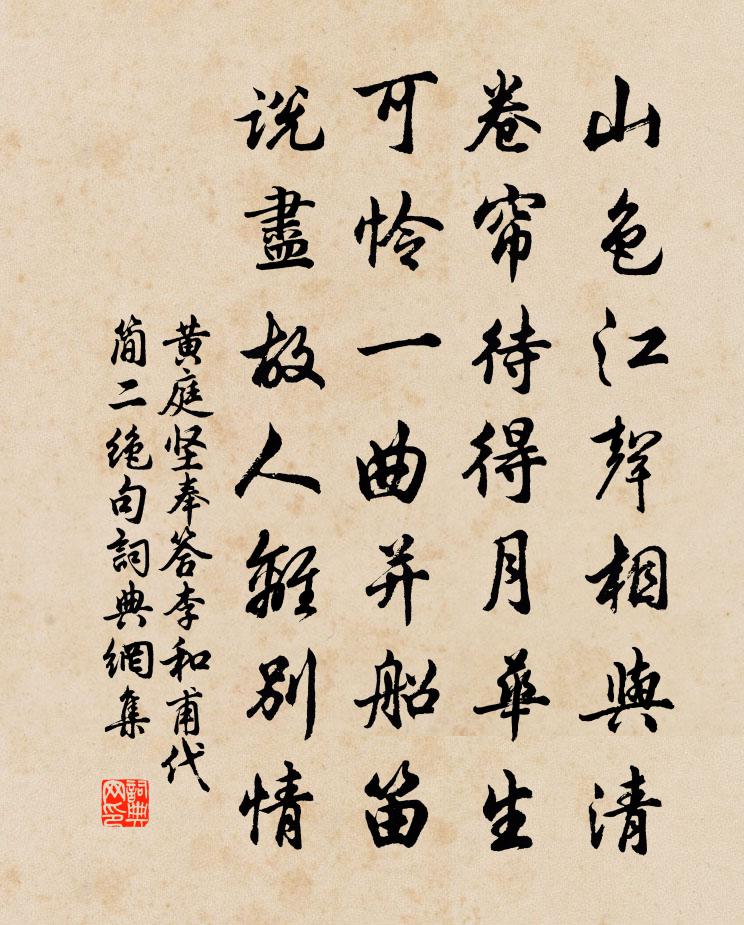 山色江聲相與清
卷帘待得月華生
可怜一曲并船笛
説盡故人離別情
黄庭坚奉答李和甫代
简二绝句詞典網集
詞典
网印